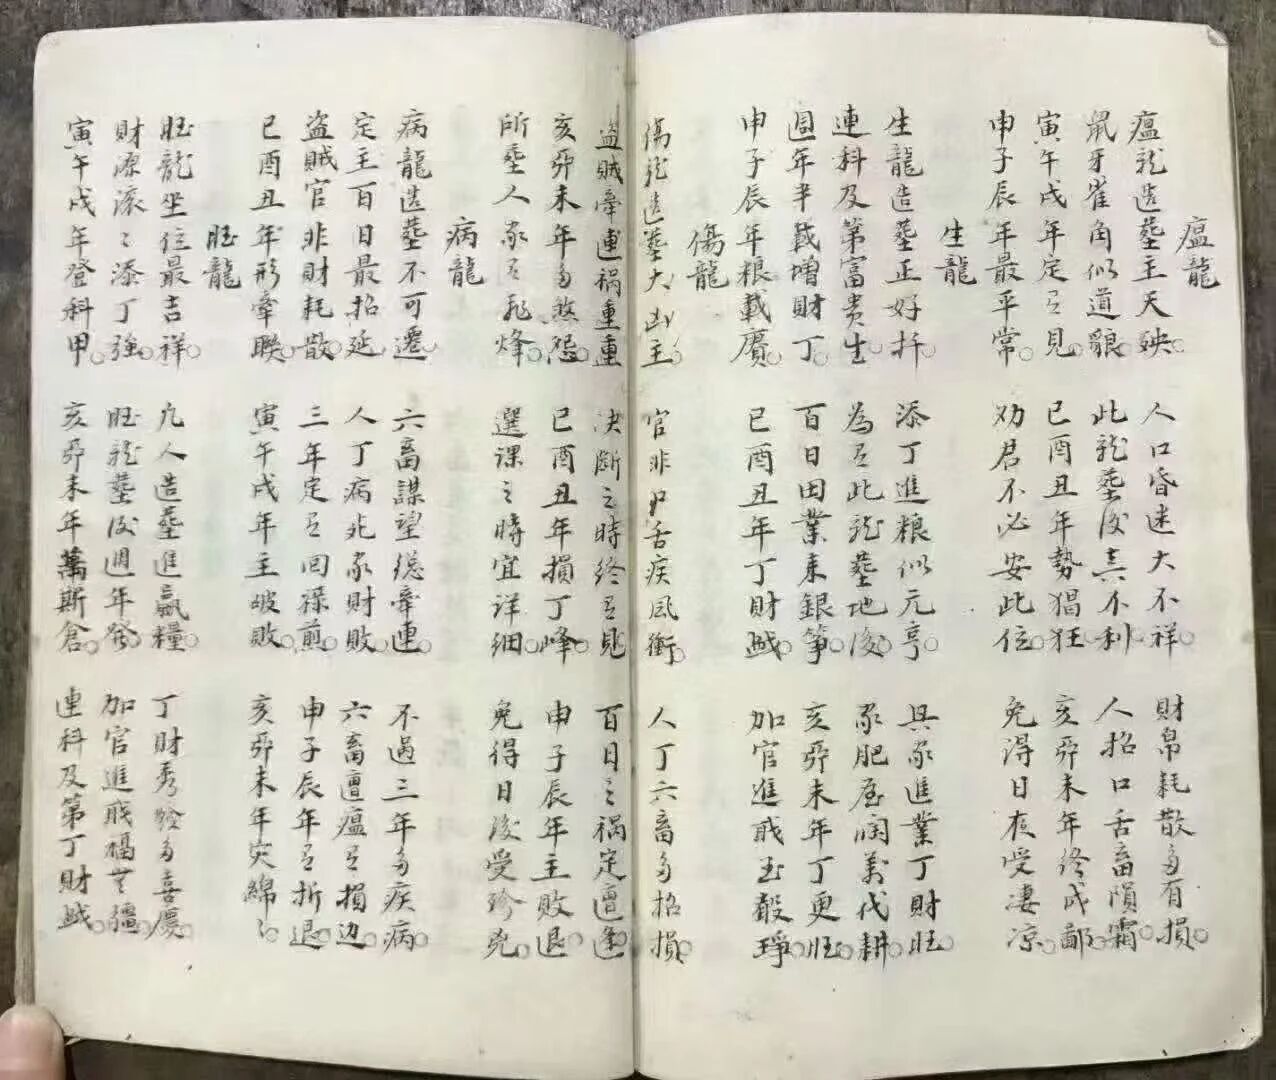 瘟龍
瘟龍造塟主天殃 人口昏迷大不祥 財帛耗散多有損
鼠牙雀角似道貌 此龍塟後真不利 人招口舌畜隕霜
寅午戌年定有見 巳酉丑年勢猖狂 亥夘未年终成鄙
申子辰年最平常 劝君不必安此位 免得日夜受凄凉
生龍
生龍造塟正好扦 添丁進粮似元亨 具家進業丁財旺
連科及第富贵生 為有此龍塟地後 家肥屋润萬代耕
週年半載增財丁 百日田業来銀箏 亥夘未年丁更旺
申子辰年粮載賡 巳酉丑年丁財盛 加官進戩玉殽琤
傷龍
傷龍造塟大凶主 官非口舌疾风衝 人丁六畜多招損
盗賊牽連祸重重 决断之時终有見 百日之祸定遭逢
亥夘未年多煞怨 巳酉丑年損丁峰 申子辰年主敗退
所塟人家有飛烽 選課之時宜详细 免得日後受珍兇
病龍
病龍造塟不可遷 六畜謀望緦牽連 不過三年多疾病
定主百日最招延 人丁病死家財敗 六畜遭瘟有損边
盗賊官非財耗散 三年定有回祿煎 申子辰年有折退
巳酉丑年形牽聨 寅午戌年主破敗 亥夘未年灾綿〻
旺龍
旺龍坐位最吉祥 凢人造塟進贏糧 丁財秀發多喜慶
財源滚〻添丁強 旺龍塟後週年發 加官進戩福無疆
寅午戌年登科甲 亥夘未年萬斯倉 連科及第丁財盛